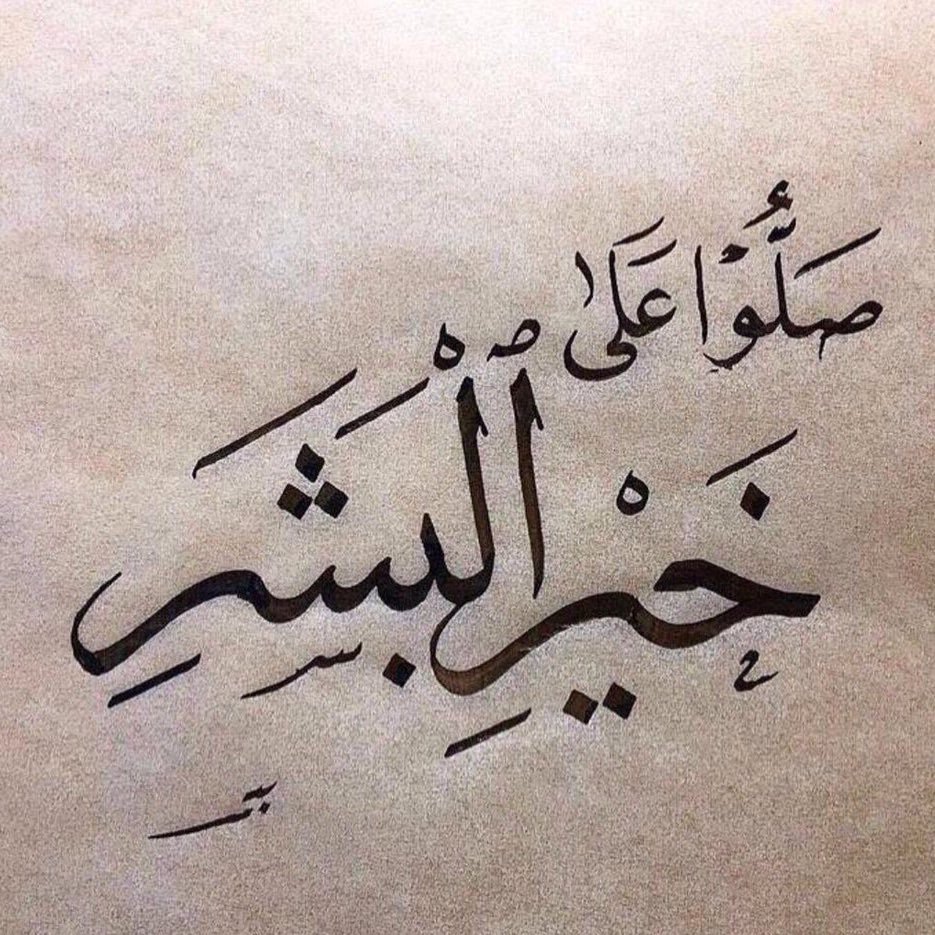 صَلُّوْا عَلَىٰ
خَيْرِ ٱلْبَشَرِ